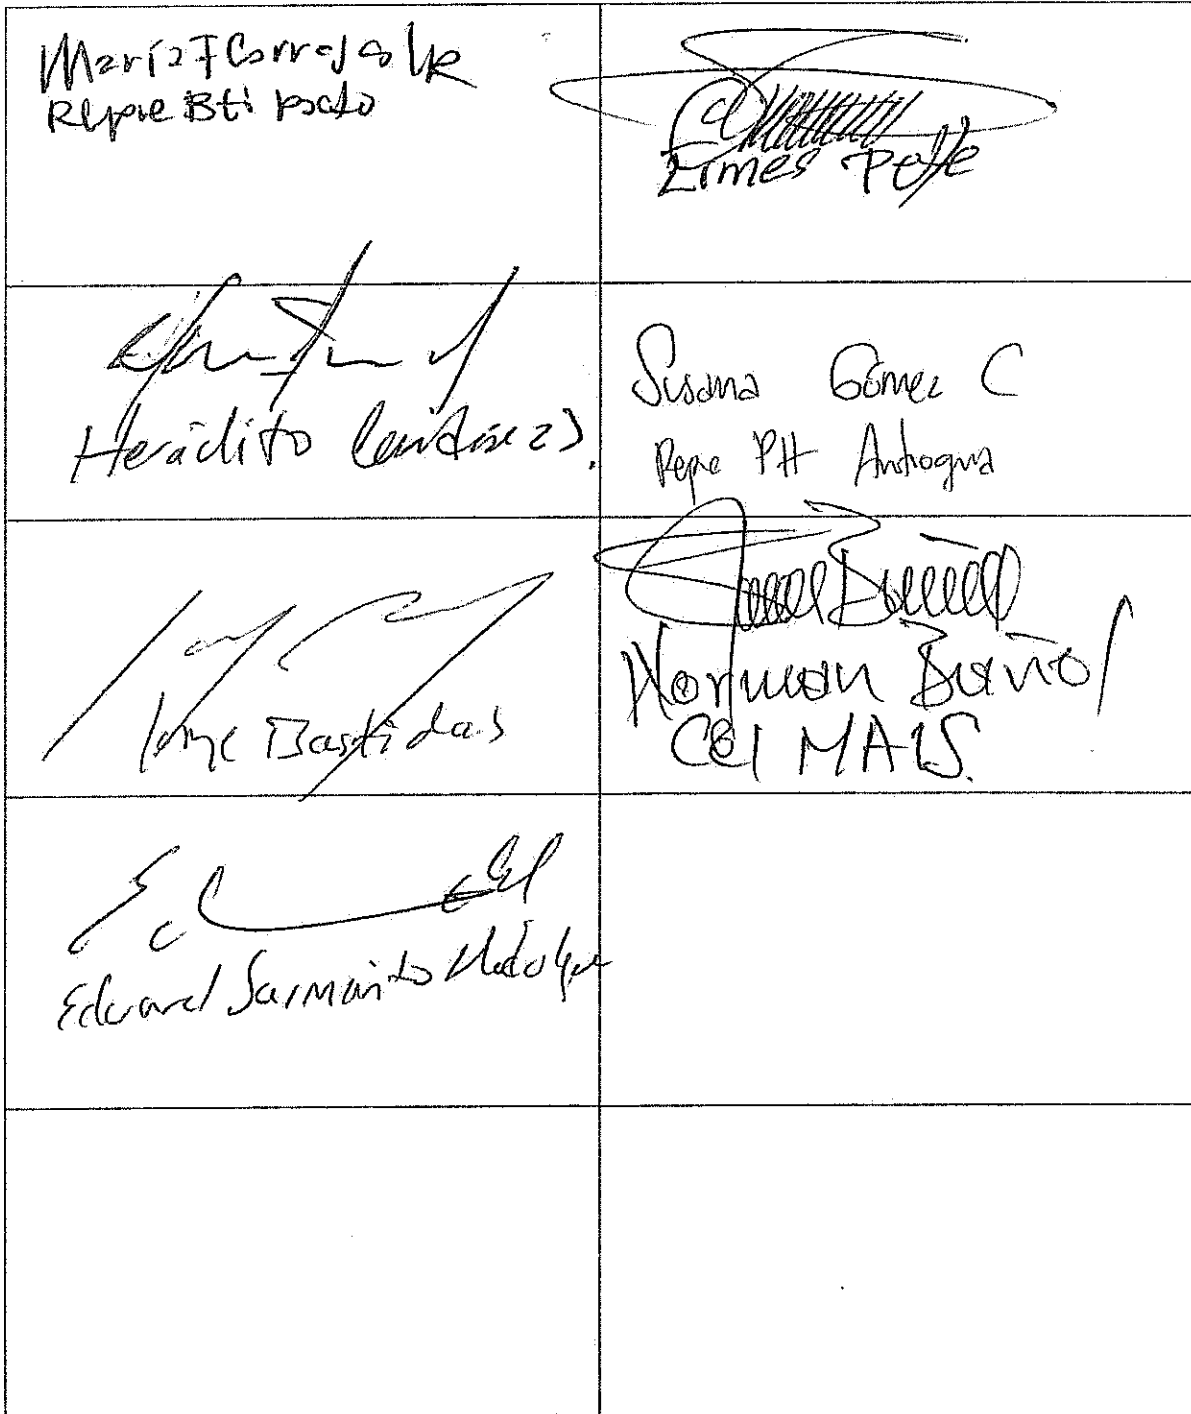 María F Carrascal R
Repre Bti
Ermes Pete
Heráclito Landinez S.
Susana Gómez C
Repre PH Antioquia
Jorge Bastidas
Norman Bañol
CEI MAIS.
Eduard Sarmiento Hidalgo